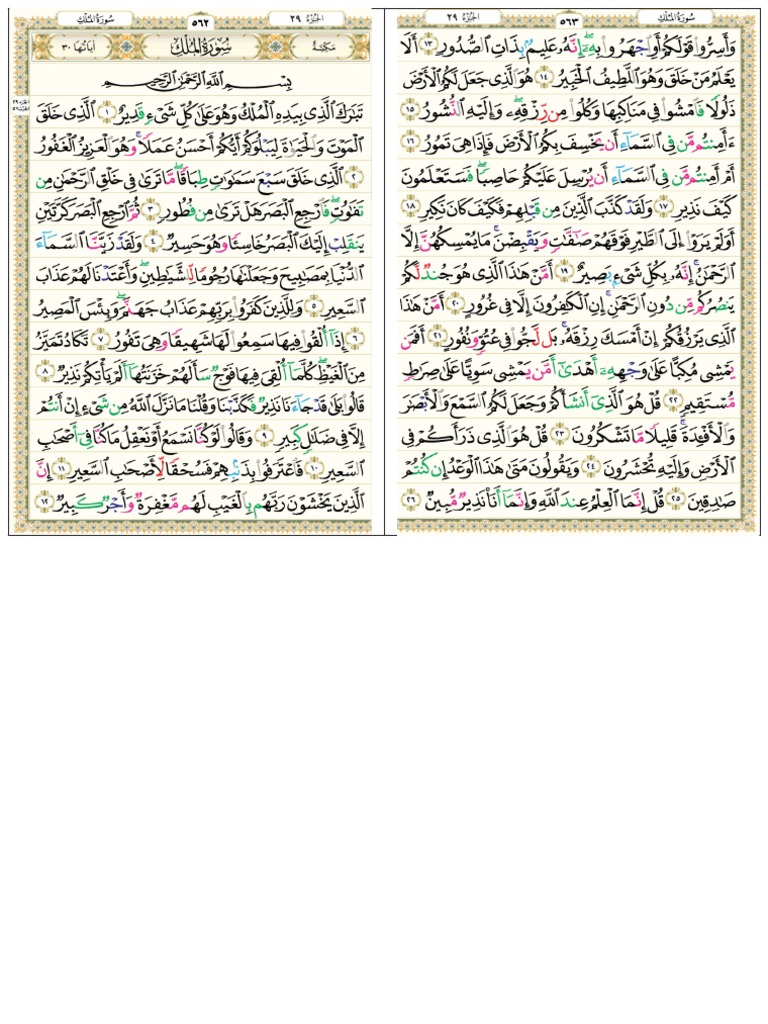 سُورَةُ المُلْكِ ٥٦٢ الجُزْءُ ٢٩
مَكِّيَّةٌ سُورَةُ المُلْكِ آيَاتُهَا ٣٠
بِسْمِ ٱللَّهِ ٱلرَّحْمَٰنِ ٱلرَّحِيمِ
تَبَٰرَكَ ٱلَّذِى بِيَدِهِ ٱلْمُلْكُ وَهُوَ عَلَىٰ كُلِّ شَىْءٍ قَدِيرٌ ١ ٱلَّذِى خَلَقَ
ٱلْمَوْتَ وَٱلْحَيَوٰةَ لِيَبْلُوَكُمْ أَيُّكُمْ أَحْسَنُ عَمَلًا ۚ وَهُوَ ٱلْعَزِيزُ ٱلْغَفُورُ
٢ ٱلَّذِى خَلَقَ سَبْعَ سَمَٰوَٰتٍ طِبَاقًا ۖ مَّا تَرَىٰ فِى خَلْقِ ٱلرَّحْمَٰنِ مِن
تَفَٰوُتٍ ۖ فَٱرْجِعِ ٱلْبَصَرَ هَلْ تَرَىٰ مِن فُطُورٍ ٣ ثُمَّ ٱرْجِعِ ٱلْبَصَرَ كَرَّتَيْنِ
يَنقَلِبْ إِلَيْكَ ٱلْبَصَرُ خَاسِئًا وَهُوَ حَسِيرٌ ٤ وَلَقَدْ زَيَّنَّا ٱلسَّمَآءَ
ٱلدُّنْيَا بِمَصَٰبِيحَ وَجَعَلْنَٰهَا رُجُومًا لِّلشَّيَٰطِينِ ۖ وَأَعْتَدْنَا لَهُمْ عَذَابَ
ٱلسَّعِيرِ ٥ وَلِلَّذِينَ كَفَرُوا۟ بِرَبِّهِمْ عَذَابُ جَهَنَّمَ ۖ وَبِئْسَ ٱلْمَصِيرُ
٦ إِذَآ أُلْقُوا۟ فِيهَا سَمِعُوا۟ لَهَا شَهِيقًا وَهِىَ تَفُورُ ٧ تَكَادُ تَمَيَّزُ
مِنَ ٱلْغَيْظِ ۖ كُلَّمَآ أُلْقِىَ فِيهَا فَوْجٌ سَأَلَهُمْ خَزَنَتُهَآ أَلَمْ يَأْتِكُمْ نَذِيرٌ ٨
قَالُوا۟ بَلَىٰ قَدْ جَآءَنَا نَذِيرٌ فَكَذَّبْنَا وَقُلْنَا مَا نَزَّلَ ٱللَّهُ مِن شَىْءٍ إِنْ أَنتُمْ
إِلَّا فِى ضَلَٰلٍ كَبِيرٍ ٩ وَقَالُوا۟ لَوْ كُنَّا نَسْمَعُ أَوْ نَعْقِلُ مَا كُنَّا فِىٓ أَصْحَٰبِ
ٱلسَّعِيرِ ١٠ فَٱعْتَرَفُوا۟ بِذَنۢبِهِمْ فَسُحْقًا لِّأَصْحَٰبِ ٱلسَّعِيرِ ١١ إِنَّ
ٱلَّذِينَ يَخْشَوْنَ رَبَّهُم بِٱلْغَيْبِ لَهُم مَّغْفِرَةٌ وَأَجْرٌ كَبِيرٌ ١٢
سُورَةُ المُلْكِ ٥٦٣ الجُزْءُ ٢٩
وَأَسِرُّوا۟ قَوْلَكُمْ أَوِ ٱجْهَرُوا۟ بِهِۦٓ ۖ إِنَّهُۥ عَلِيمٌۢ بِذَاتِ ٱلصُّدُورِ ١٣ أَلَا
يَعْلَمُ مَنْ خَلَقَ وَهُوَ ٱللَّطِيفُ ٱلْخَبِيرُ ١٤ هُوَ ٱلَّذِى جَعَلَ لَكُمُ ٱلْأَرْضَ
ذَلُولًا فَٱمْشُوا۟ فِى مَنَاكِبِهَا وَكُلُوا۟ مِن رِّزْقِهِۦ ۖ وَإِلَيْهِ ٱلنُّشُورُ ١٥
ءَأَمِنتُم مَّن فِى ٱلسَّمَآءِ أَن يَخْسِفَ بِكُمُ ٱلْأَرْضَ فَإِذَا هِىَ تَمُورُ ١٦
أَمْ أَمِنتُم مَّن فِى ٱلسَّمَآءِ أَن يُرْسِلَ عَلَيْكُمْ حَاصِبًا ۖ فَسَتَعْلَمُونَ
كَيْفَ نَذِيرِ ١٧ وَلَقَدْ كَذَّبَ ٱلَّذِينَ مِن قَبْلِهِمْ فَكَيْفَ كَانَ نَكِيرِ ١٨
أَوَلَمْ يَرَوْا۟ إِلَى ٱلطَّيْرِ فَوْقَهُمْ صَٰٓفَّٰتٍ وَيَقْبِضْنَ ۚ مَا يُمْسِكُهُنَّ إِلَّا
ٱلرَّحْمَٰنُ ۚ إِنَّهُۥ بِكُلِّ شَىْءٍۭ بَصِيرٌ ١٩ أَمَّنْ هَٰذَا ٱلَّذِى هُوَ جُندٌ لَّكُمْ
يَنصُرُكُم مِّن دُونِ ٱلرَّحْمَٰنِ ۚ إِنِ ٱلْكَٰفِرُونَ إِلَّا فِى غُرُورٍ ٢٠ أَمَّنْ هَٰذَا
ٱلَّذِى يَرْزُقُكُمْ إِنْ أَمْسَكَ رِزْقَهُۥ ۚ بَل لَّجُّوا۟ فِى عُتُوٍّ وَنُفُورٍ ٢١ أَفَمَن
يَمْشِى مُكِبًّا عَلَىٰ وَجْهِهِۦٓ أَهْدَىٰٓ أَمَّن يَمْشِى سَوِيًّا عَلَىٰ صِرَٰطٍ
مُّسْتَقِيمٍ ٢٢ قُلْ هُوَ ٱلَّذِىٓ أَنشَأَكُمْ وَجَعَلَ لَكُمُ ٱلسَّمْعَ وَٱلْأَبْصَٰرَ
وَٱلْأَفْـِٔدَةَ ۖ قَلِيلًا مَّا تَشْكُرُونَ ٢٣ قُلْ هُوَ ٱلَّذِى ذَرَأَكُمْ فِى
ٱلْأَرْضِ وَإِلَيْهِ تُحْشَرُونَ ٢٤ وَيَقُولُونَ مَتَىٰ هَٰذَا ٱلْوَعْدُ إِن كُنتُمْ
صَٰدِقِينَ ٢٥ قُلْ إِنَّمَا ٱلْعِلْمُ عِندَ ٱللَّهِ وَإِنَّمَآ أَنَا۠ نَذِيرٌ مُّبِينٌ ٢٦